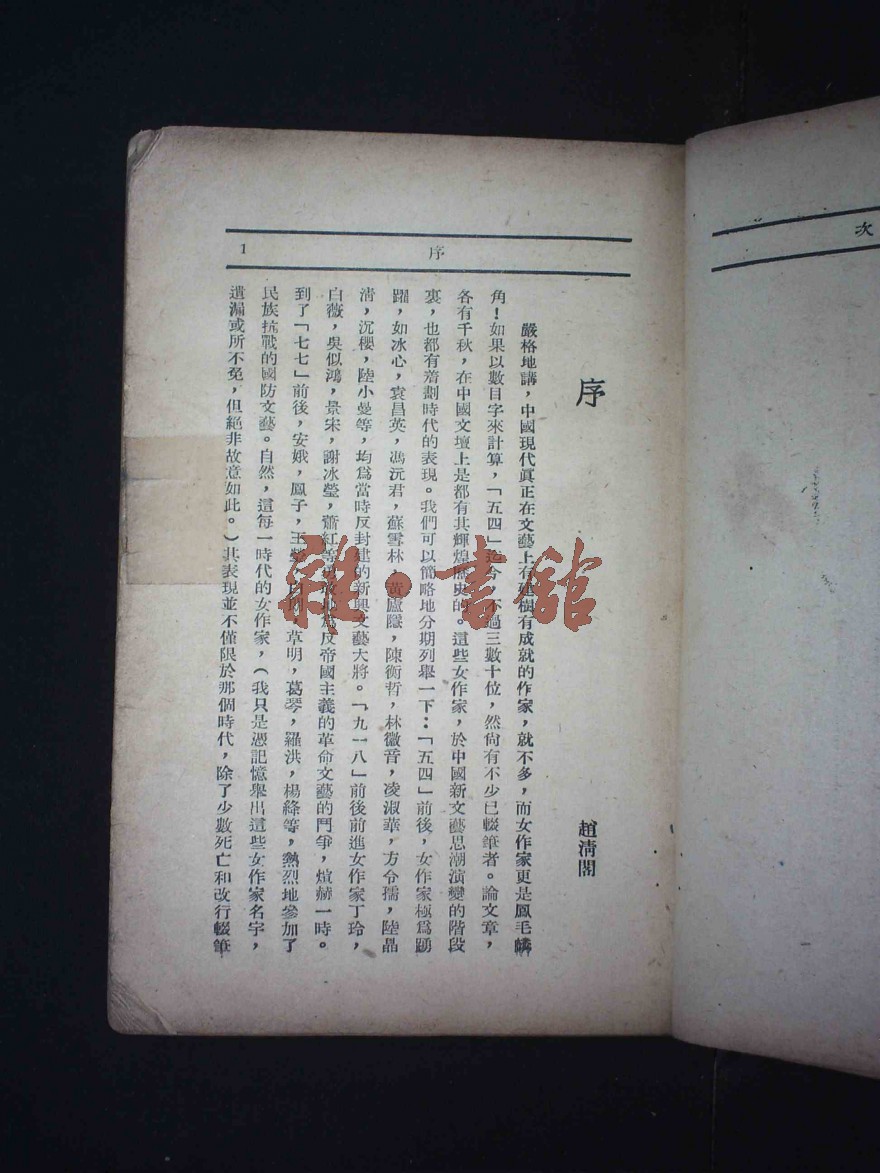 序
1
序
趙淸閣
嚴格地講，中國現代眞正在文藝上有建樹有成就的作家，就不多，而女作家更是鳳毛麟
角！如果以數目字來計算，「五四」迄今，不過三數十位，然尙有不少已輟筆者。論文章，
各有千秋，在中國文壇上是都有其輝煌歷史的。這些女作家，於中國新文藝思潮演變的階段
裏，也都有着劃時代的表現。我們可以簡略地分期列舉一下：「五四」前後，女作家極爲踴
躍，如冰心，袁昌英，馮沅君，蘇雪林，黃廬隱，陳衡哲，林徽音，凌淑華，方令孺，陸晶
淸，沉櫻，陸小曼等，均爲當時反封建的新興文藝大將。「九一八」前後前進女作家丁玲，
白薇，吳似鴻，景宋，謝冰瑩，蕭紅等反帝國主義的革命文藝的鬥爭，煊赫一時。
到了「七七」前後，安娥，鳳子，王瑩，白朗，草明，葛琴，羅洪，楊絳等，熱烈地參加了
民族抗戰的國防文藝。自然，這每一時代的女作家，（我只是憑記憶舉出這些女作家名字，
遺漏或所不免，但絕非故意如此。）其表現並不僅限於那個時代，除了少數死亡和改行輟筆
次
雜·書館